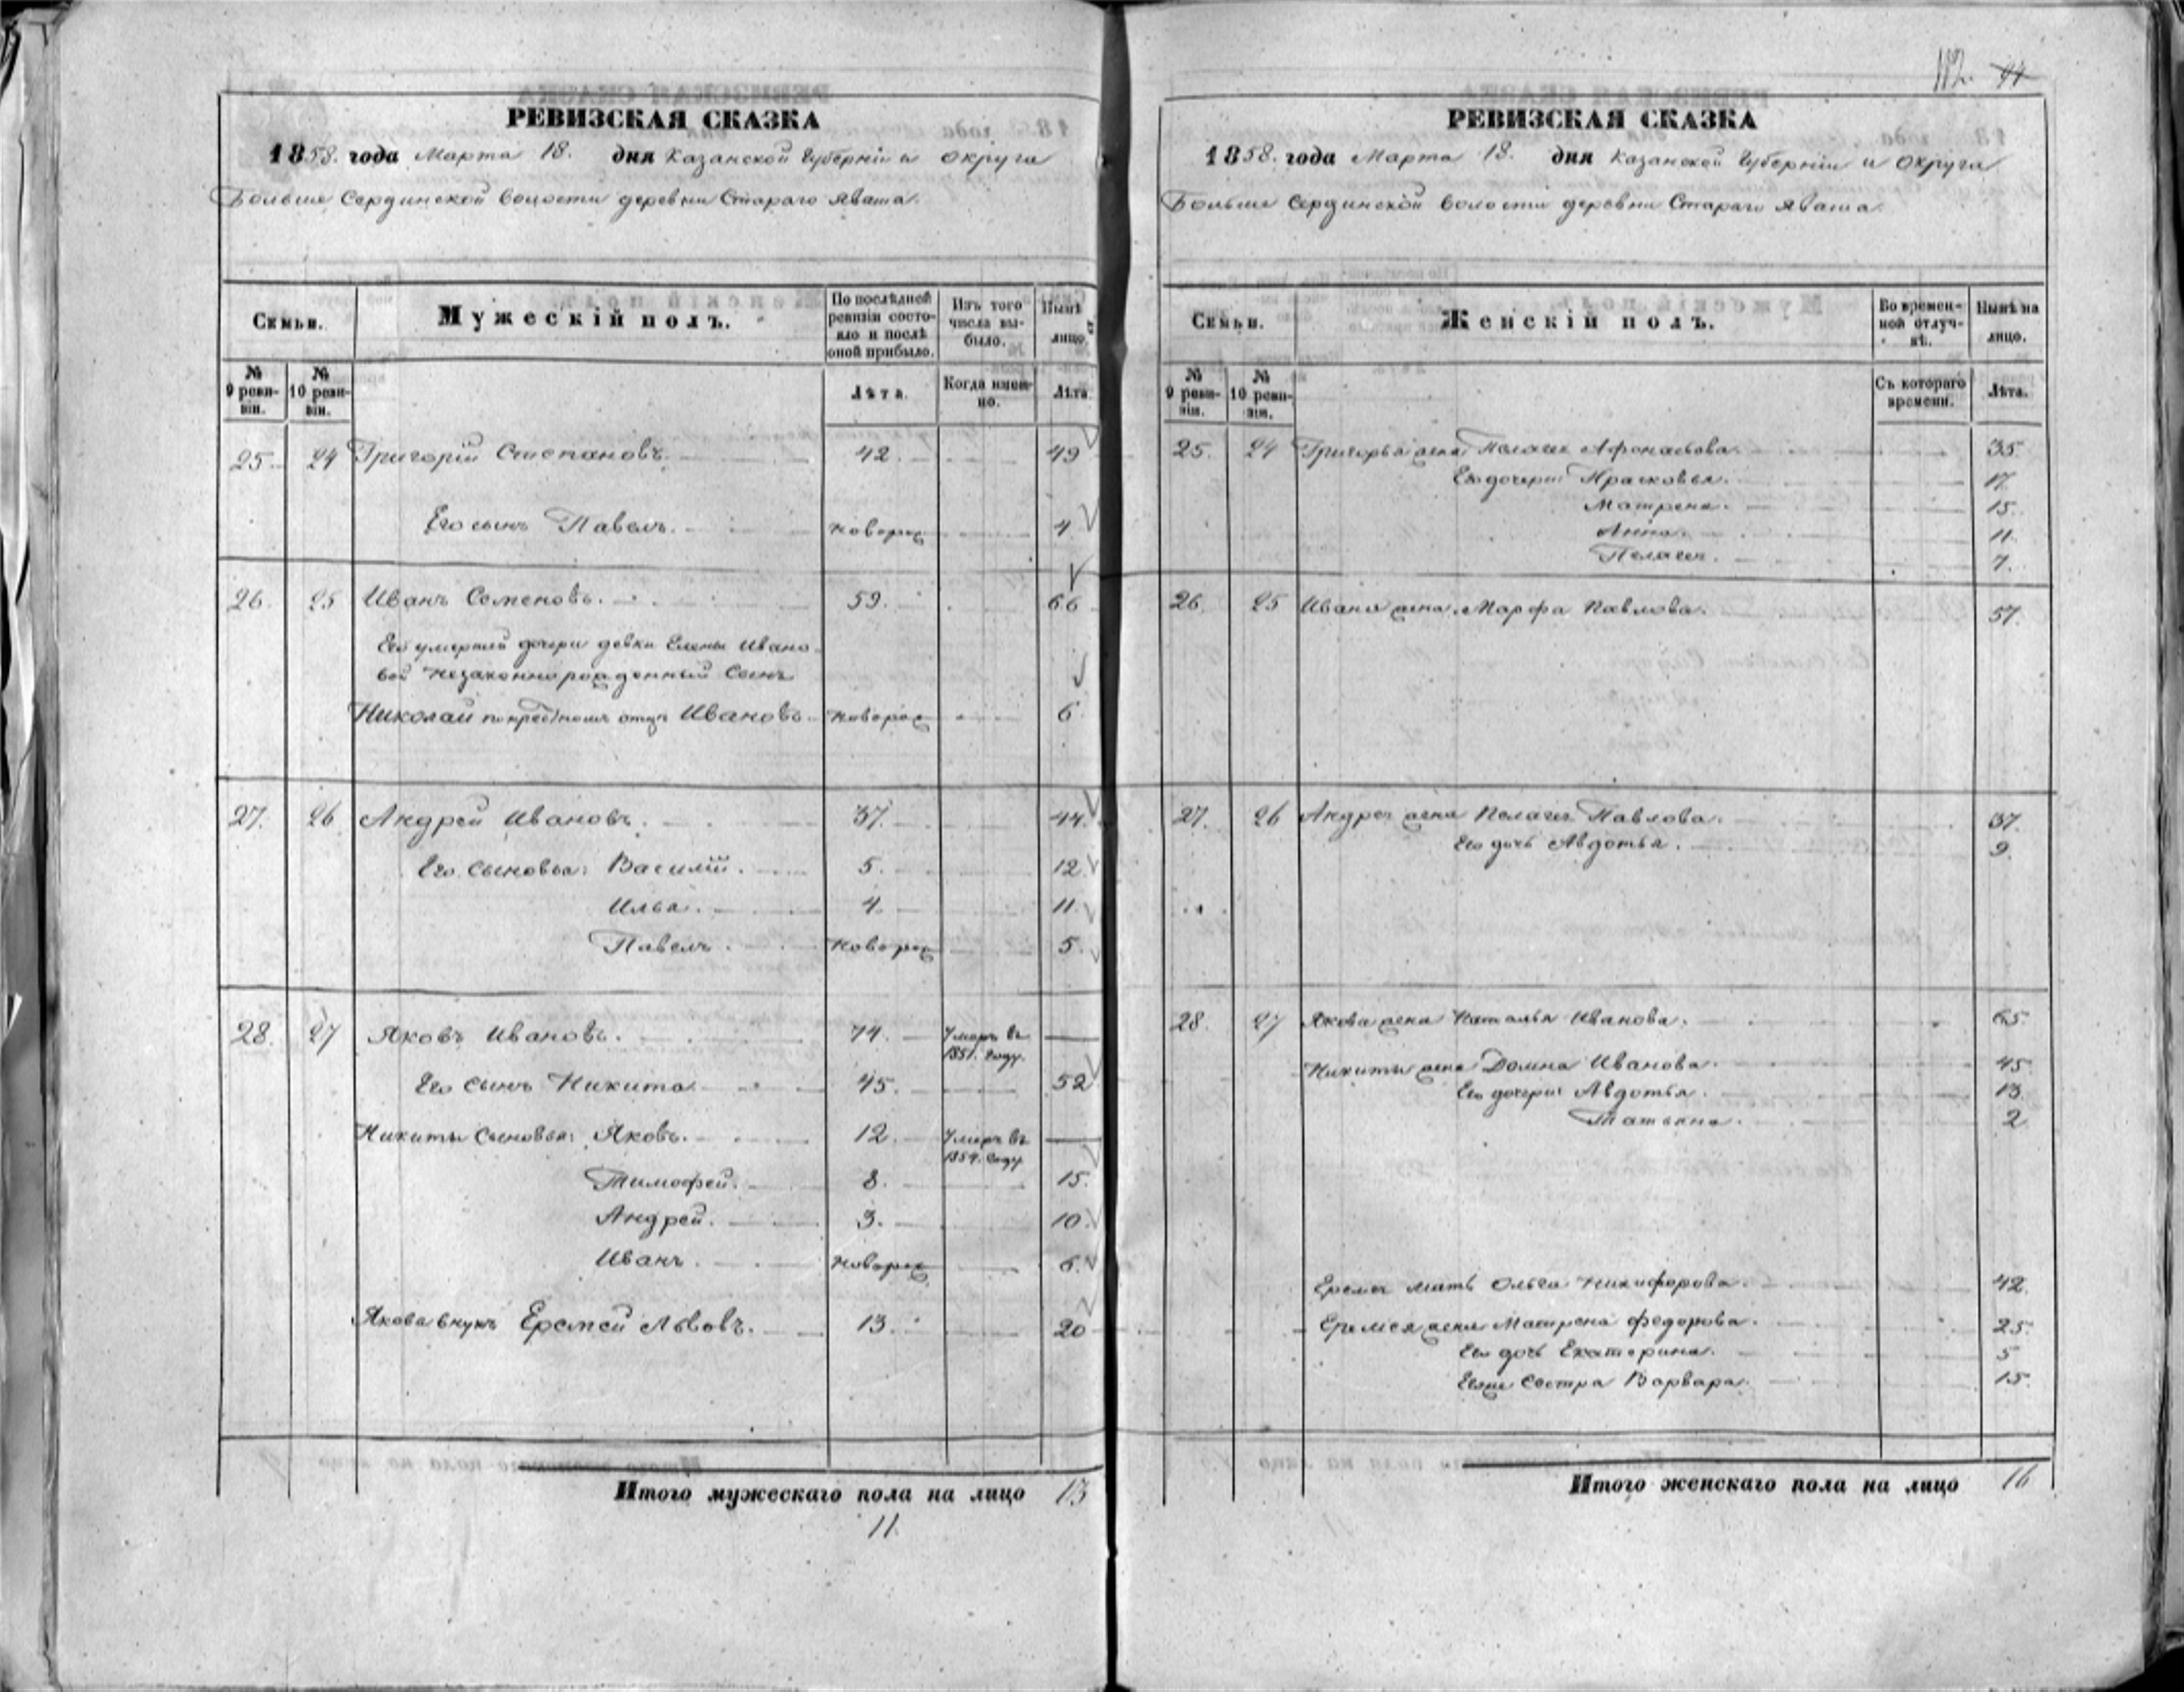 112. 94
РЕВИЗСКАЯ СКАЗКА
1858. года Марта 18. дня Казанской Губерніи и округа
Больше Сердинской волости деревни Стараго Яваша.
Семьи.
Мужескій полъ.
По послѣдней ревизіи состояло и послѣ оной прибыло.
Изъ того числа выбыло.
Нынѣ лицо.
№ 9 ревизіи.
№ 10 ревизіи.
Лѣта.
Когда именно.
Лѣта.
25. 24 Григорій Степановъ. 42. 49
Его сынъ Павелъ. новорож 4
26. 25 Иванъ Семеновъ. 59. 66
Его умершей дочери девки Елены Ивано
вой незаконнорожденный Сынъ
Николай по крестному отцу Ивановъ новорож 6
27. 26 Андрей Ивановъ. 37. 44.
Его Сыновья: Василій. 5. 12
Илья. 4. 11.
Павелъ. новорож 5
28. 27 Яковъ Ивановъ. 74. Умеръ въ 1851. году.
Его сынъ Никита 45. 52
Никиты Сыновья: Яковъ. 12. Умеръ въ 1854. году
Тимофей. 8. 15.
Андрей. 3. 10
Иванъ. новорож 6.
Якова внукъ Еремей Львовъ. 13. 20
Итого мужескаго пола на лицо 13
11.
РЕВИЗСКАЯ СКАЗКА
1858. года Марта 18. дня Казанской Губерніи и округа
Больше Сердинской волости деревни Стараго Яваша
Семьи.
Женскій полъ.
Во временной отлучкѣ.
Нынѣ на лицо.
№ 9 ревизіи.
№ 10 ревизіи.
Съ котораго времени.
Лѣта.
25. 24 Григорья жена Пелагея Афонасьева. 35.
Его дочери: Прасковья. 17.
Матрена. 15.
Анна. 11.
Пелагея. 7.
26. 25 Ивана жена Марфа Павлова. 57.
27. 26 Андрея жена Пелагея Павлова. 37.
Его дочь Авдотья. 9.
28. 27 Якова жена Наталья Иванова. 65.
Никиты жена Домна Иванова. 45
Его дочери: Авдотья. 13
Татьяна. 2
Еремея мать Ольга Никифорова. 42.
Еремея жена Матрена Федорова. 25.
Его дочь Екатерина. 5
Егоже Сестра Варвара. 15.
Итого женскаго пола на лицо 16